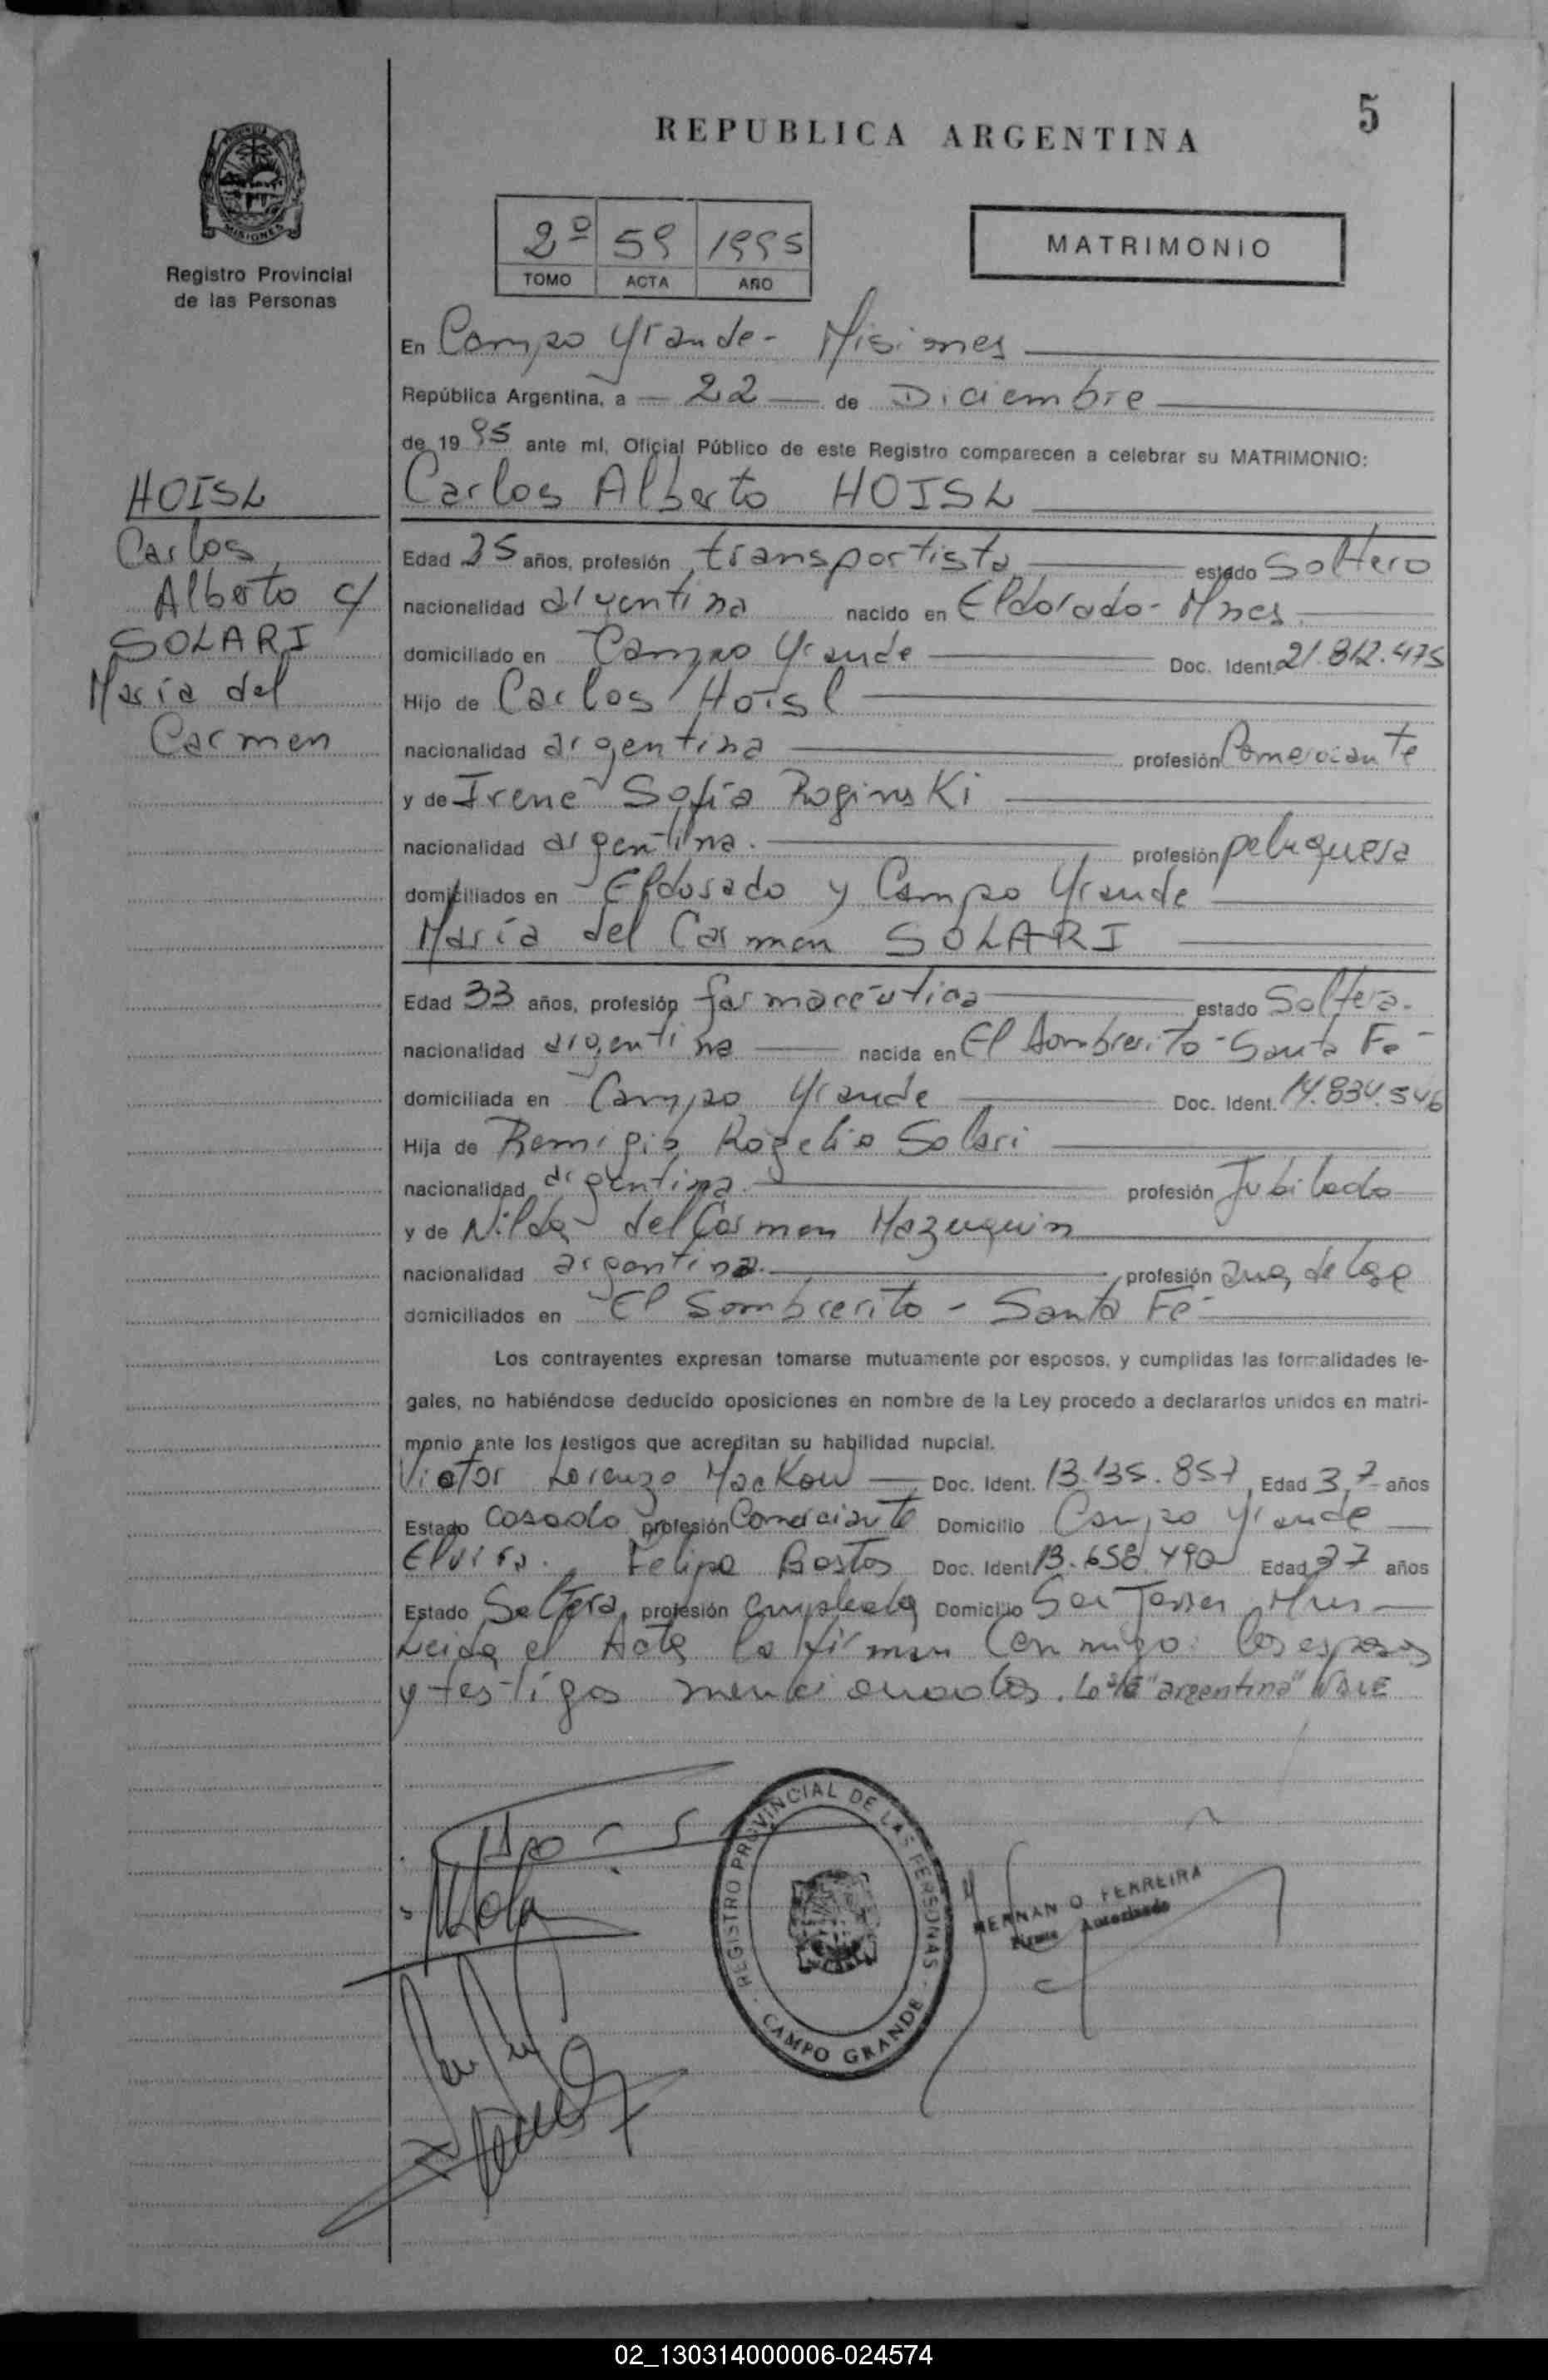 REPUBLICA ARGENTINA
5
MISIONES
Registro Provincial
de las Personas
2º 59 1995
TOMO ACTA AÑO
MATRIMONIO
En Campo Grande - Misiones
República Argentina, a 22 de Diciembre
de 19 95 ante mí, Oficial Público de este Registro comparecen a celebrar su MATRIMONIO:
HOISL
Carlos
Alberto c/
SOLARI
María del
Carmen
Carlos Alberto HOISL
Edad 25 años, profesión transportista estado Soltero
nacionalidad argentina nacido en Eldorado - Mnes.
domiciliado en Campo Grande Doc. Ident. 21.812.475
Hijo de Carlos Hoisl
nacionalidad argentina profesión Comerciante
y de Irene Sofía Roginski
nacionalidad argentina. profesión peluquera
domiciliados en Eldorado y Campo Grande
María del Carmen SOLARI
Edad 33 años, profesión farmacéutica estado Soltera.
nacionalidad argentina nacida en El Sombrerito - Santa Fe
domiciliada en Campo Grande Doc. Ident. 14.834.546
Hija de Remigio Rogelio Solari
nacionalidad argentina. profesión Jubilado
y de Nilda del Carmen Mazuquin
nacionalidad argentina. profesión ama de casa
domiciliados en El Sombrerito - Santa Fe
Los contrayentes expresan tomarse mutuamente por esposos, y cumplidas las formalidades le-
gales, no habiéndose deducido oposiciones en nombre de la Ley procedo a declararlos unidos en matri-
monio ante los testigos que acreditan su habilidad nupcial.
Victor Lorenzo Mackow Doc. Ident. 13.135.857, Edad 37 años
Estado Casado profesión Comerciante Domicilio Campo Grande
Elvira Felipa Bastos Doc. Ident. 13.658.490 Edad 37 años
Estado Soltera, profesión empleada Domicilio San Javier Mnes
Leida el Acta la firman conmigo: los esposos
y testigos mencionados. Lo "argentina" VALE
REGISTRO PROVINCIAL DE LAS PERSONAS - CAMPO GRANDE -
HERNAN O FERREIRA
Firma Autorizada
02_130314000006-024574